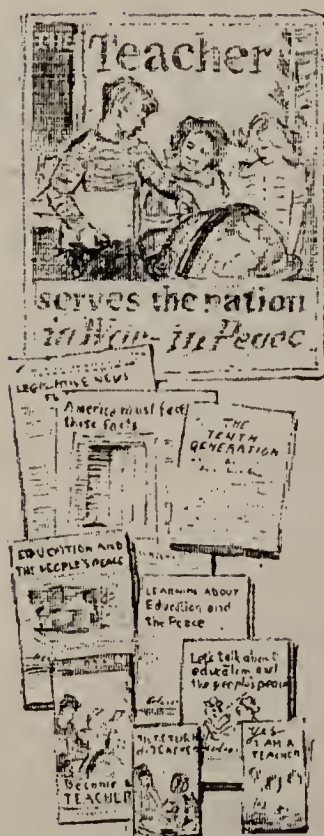 Teacher
serves the nation
in War - in Peace
LEGISLATIVE NEWS
America must face
these facts
THE
TENTH
GENERATION
EDUCATION AND
THE PEOPLE'S PEACE
LEARNING ABOUT
Education and
the Peace
Let's talk about
education and
the people's peace
Become a
TEACHER
yes-
I AM A
TEACHER